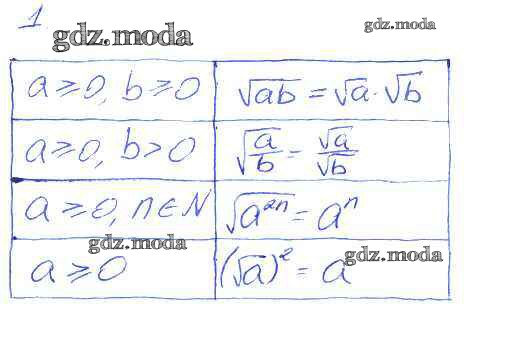 1
gdz.moda
gdz.moda
a ≥ 0, b ≥ 0 √ab = √a · √b
a ≥ 0, b > 0 √a/b = √a/√b
a ≥ 0, n ∈ N √a²ⁿ = aⁿ
gdz.moda
a ≥ 0 (√a)² = a
gdz.moda